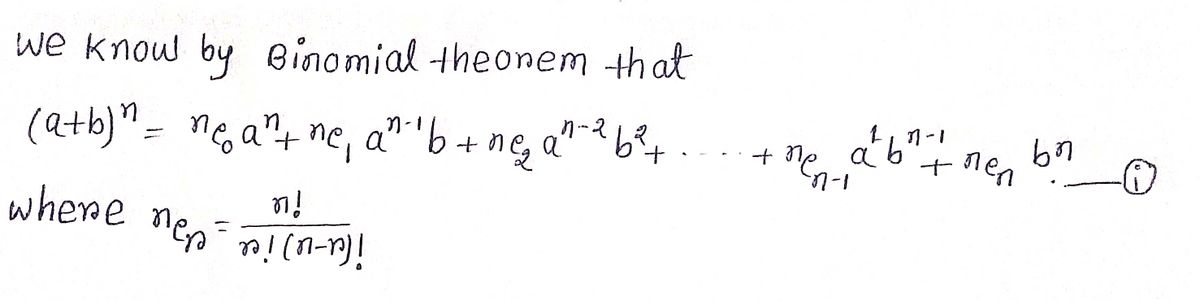 We know by Binomial theorem that
(a+b)ⁿ = nC₀ aⁿ + nC₁ aⁿ⁻¹b + nC₂ aⁿ⁻²b² + ..... + nCₙ₋₁ a¹bⁿ⁻¹ + nCₙ bⁿ. — ⓘ
where nCᵣ = n!/r!(n-r)!